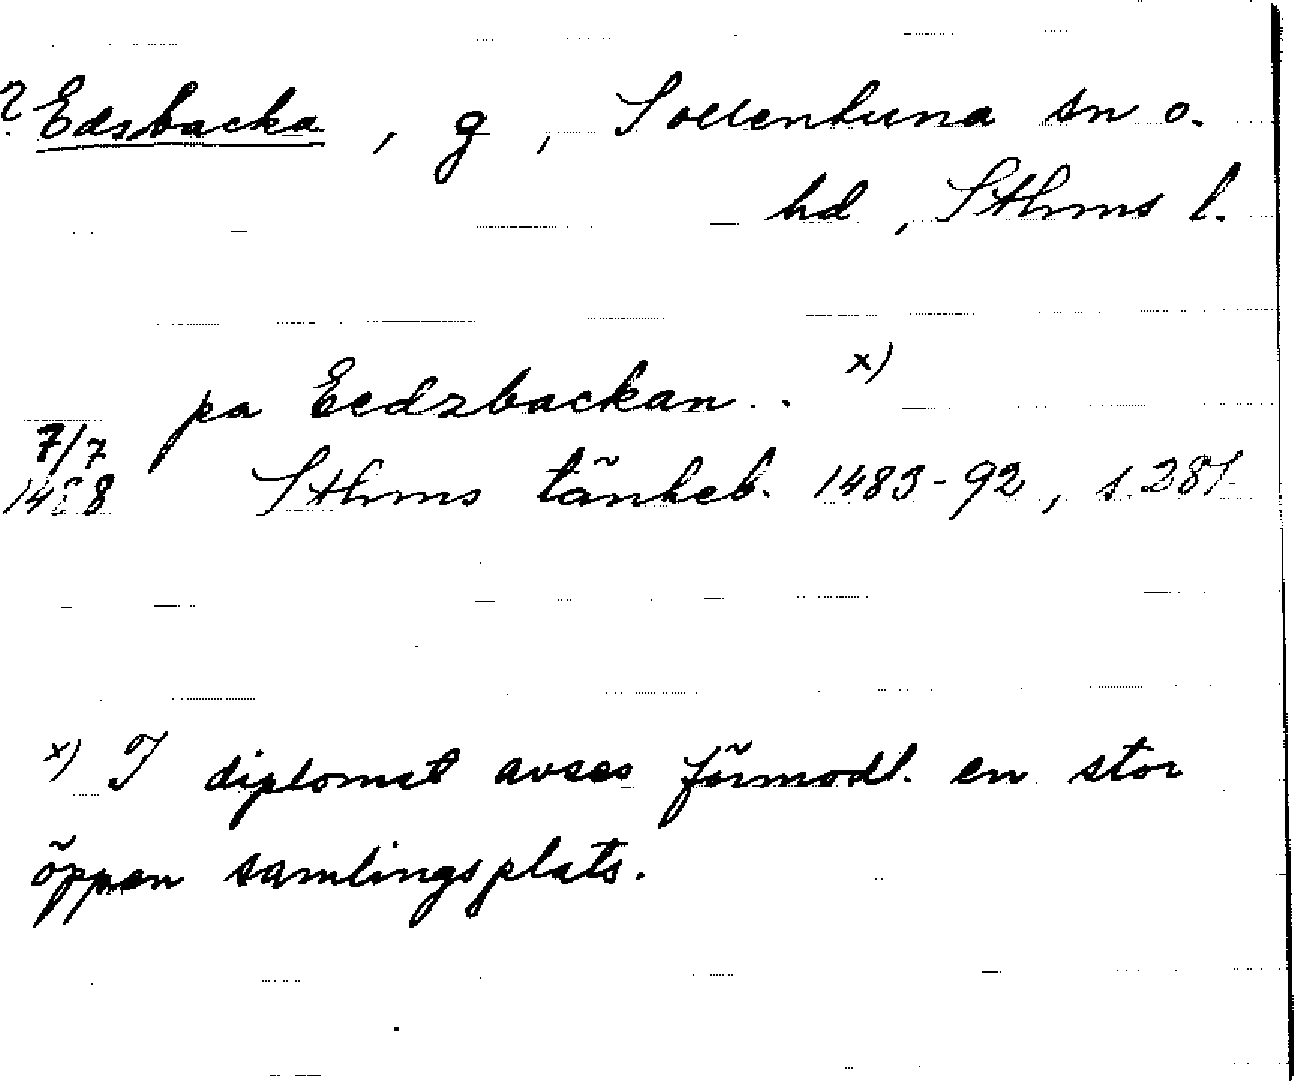 ? Edsbacka, g, Sollentuna sn o.
hd, Sthms l.
pa Eedzbackan.. x)
7/7
1488 Sthms tänkeb. 1483-92, s. 281
x) I diplomet avses förmodl. en stor
öppen samlingsplats.